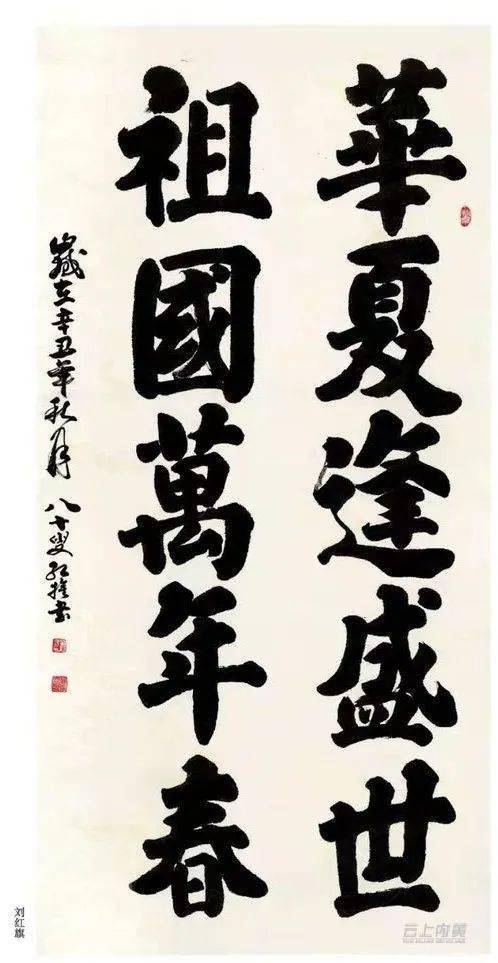 華夏逢盛世
祖國萬年春
歲在辛丑年秋月 八十叟红旗书
刘红旗
云上内黄